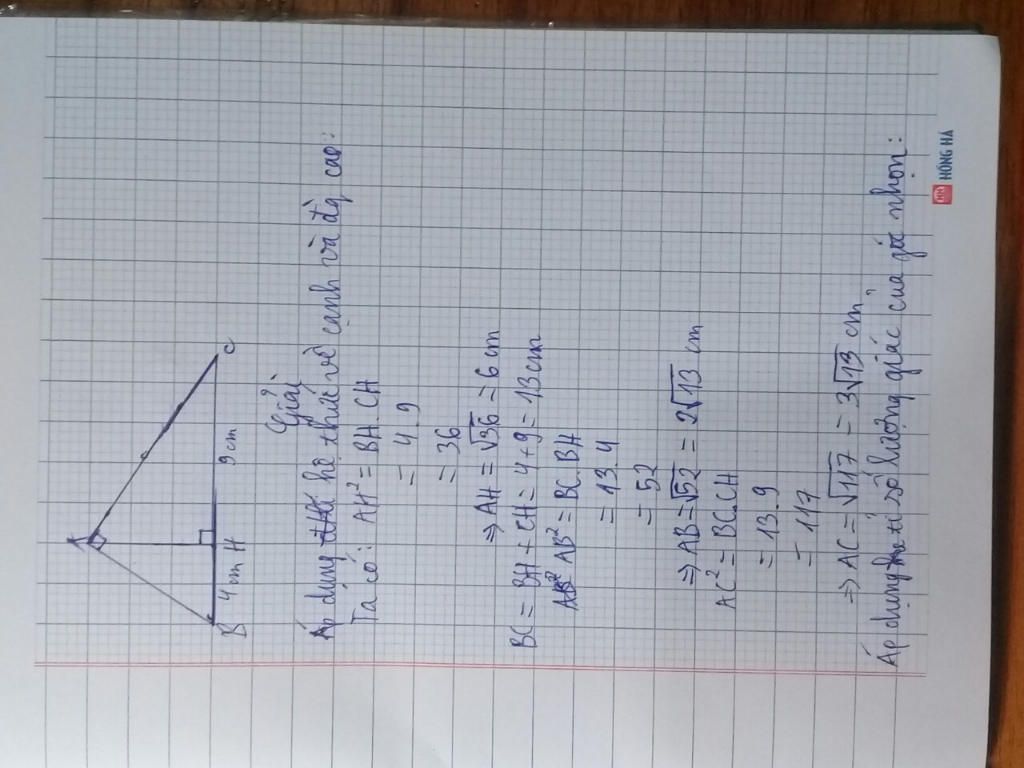 A
B
4cm
H
9cm
C
Giải
Áp dụng hệ thức về cạnh và đg cao:
Ta có: AH² = BH.CH
= 4.9
= 36
⇒ AH = √36 = 6cm
BC = BH + CH = 4+9 = 13cm
AB² = BC.BH
= 13.4
= 52
⇒ AB = √52 = 2√13 cm
AC² = BC.CH
= 13.9
= 117
⇒ AC = √117 = 3√13 cm
Áp dụng tỉ số lượng giác của góc nhọn:
HỒNG HÀ